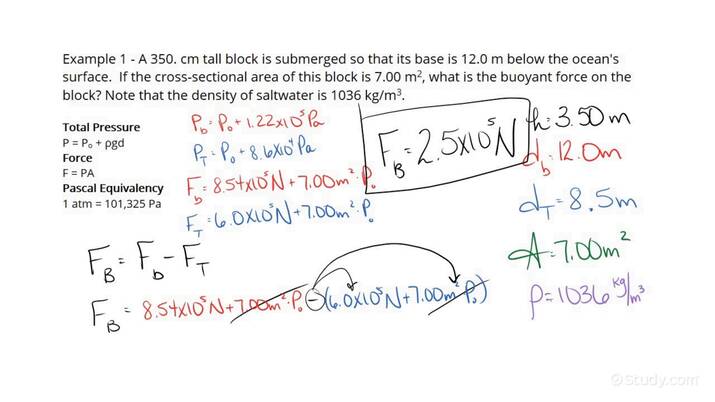 Example 1 - A 350. cm tall block is submerged so that its base is 12.0 m below the ocean's
surface. If the cross-sectional area of this block is 7.00 m², what is the buoyant force on the
block? Note that the density of saltwater is 1036 kg/m³.
Total Pressure
P = Pₒ + ρgd
Force
F = PA
Pascal Equivalency
1 atm = 101,325 Pa
P_b = P₀ + 1.22x10⁵ Pa
P_T = P₀ + 8.6x10⁴ Pa
F_b = 8.54x10⁵N + 7.00m² · P₀
F_T = 6.0x10⁵N + 7.00m² · P₀
F_B = 2.5x10⁵ N
h = 3.50 m
d_b = 12.0m
d_T = 8.5m
A = 7.00m²
ρ = 1036 kg/m³
F_B = F_b - F_T
F_B = 8.54x10⁵N + 7.00m² · P₀ - (6.0x10⁵N + 7.00m² P₀)
Study.com